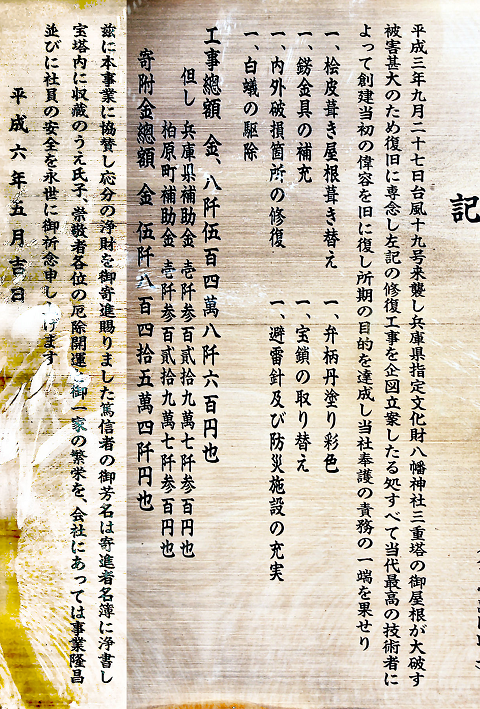 記
平成三年九月二十七日台風十九号来襲し兵庫県指定文化財八幡神社三重塔の御屋根が大破す
被害甚大のため復旧に専念し左記の修復工事を企図立案したる処すべて当代最高の技術者に
よって創建当初の偉容を旧に復し所期の目的を達成し当社奉護の責務の一端を果せり
一、桧皮葺き屋根葺き替え
一、弁柄丹塗り彩色
一、錺金具の補充
一、宝鎖の取り替え
一、内外破損箇所の修復
一、避雷針及び防災施設の充実
一、白蟻の駆除
工事總額 金、八阡伍百四萬八阡六百円也
但し 兵庫県補助金 壱阡参百貳拾九萬七阡参百円也
柏原町補助金 壱阡参百貳拾九萬七阡参百円也
寄附金總額 金 伍阡八百四拾五萬四阡円也
茲に本事業に協賛し応分の浄財を御寄進賜りました篤信者の御芳名は寄進者名簿に浄書し
宝塔内に収蔵のうえ氏子、崇敬者各位の厄除開運 御一家の繁栄を、会社にあっては事業隆昌
並びに社員の安全を永世に御祈念申し げます
平成六年五月吉日